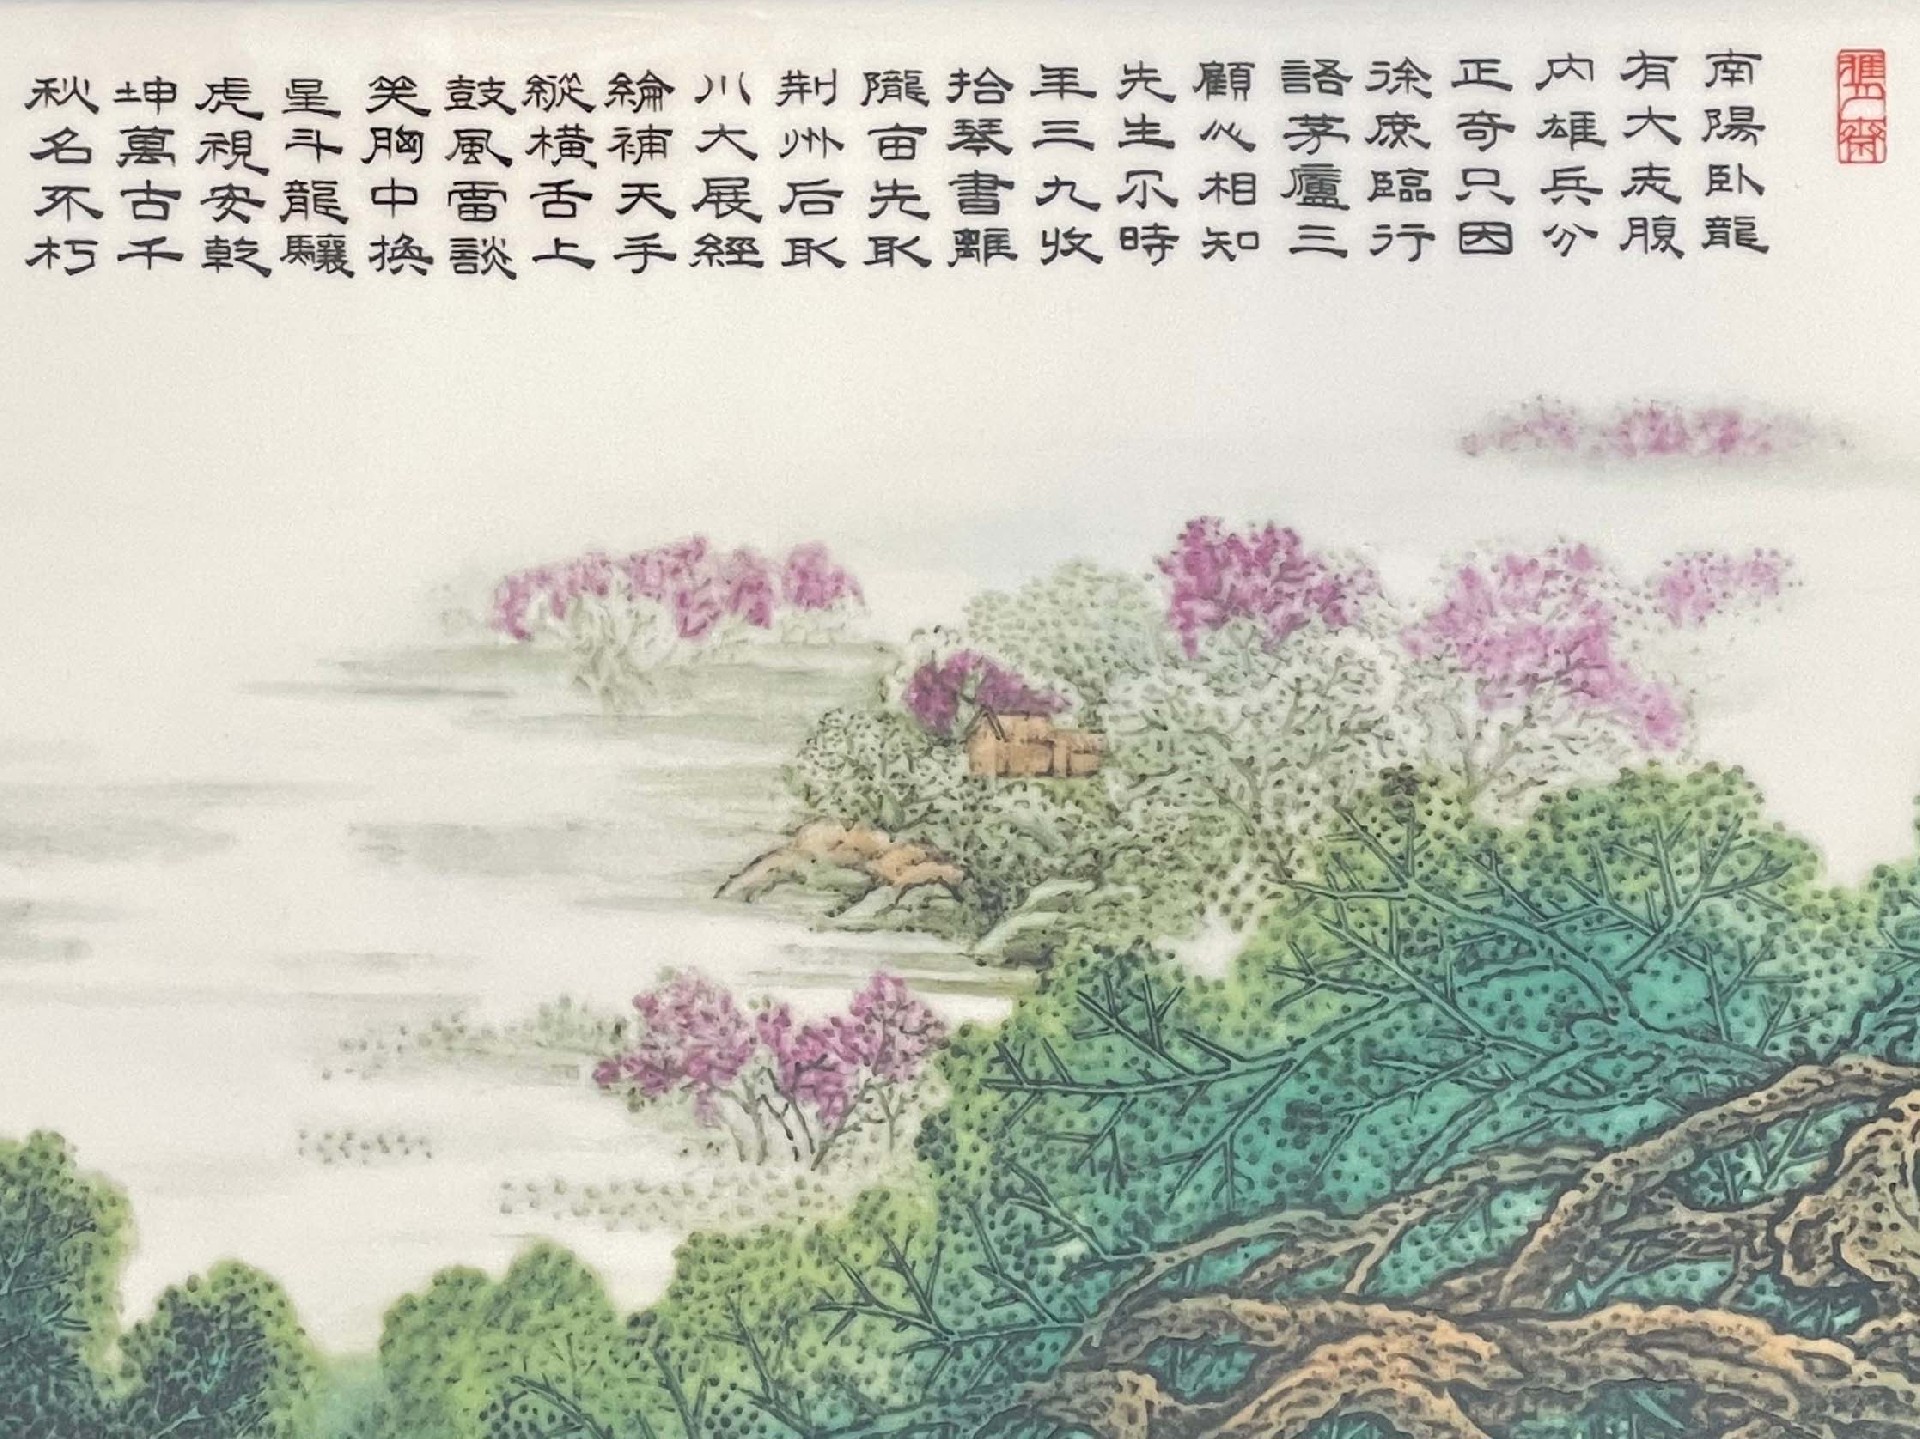 南陽卧龍
有大志腹
内雄兵分
正奇只因
徐庶臨行
語茅廬三
顧心相知
先生尔時
年三九收
拾琴書離
隴亩先取
荆州后取
川大展經
綸補天手
縱橫舌上
鼓風雷談
笑胸中换
星斗龍驤
虎視安乾
坤萬古千
秋名不朽